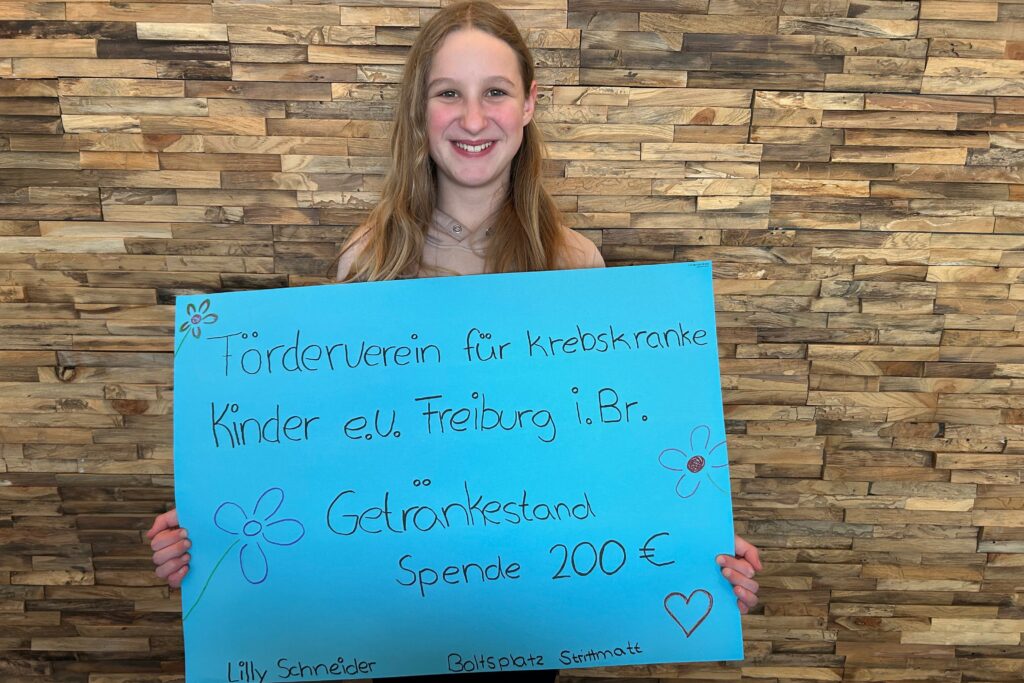 Förderverein für krebskranke
Kinder e.V. Freiburg i.Br.
Getränkestand
Spende 200 €
Lilly Schneider Boltsplatz Strittmatt